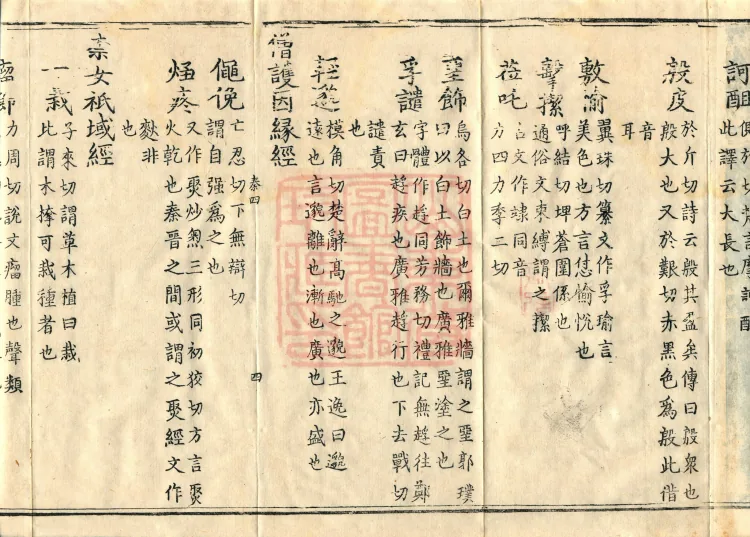 訶咀
此譯云大長也
殷皮
於斤切詩云殷其盈矣傳曰殷衆也
殷大也又於艱切赤黑色爲殷此借
音
耳
敷渝
翼珠切纂文作孚瑜言
美色也方言怤愉悅也
擊㩢
呼結切埤蒼圍係也
通俗文束縛謂之㩢
莅吒
古文作隸同音
力四力季二切
堊飾
烏各切白土也爾雅牆謂之堊郭璞
曰以白土飾牆也廣雅堊塗之也
字體作趍同芳務切禮記無趍往鄭
孚譴
玄曰趍疾也廣雅趍行也下去戰切
譴責
也
模角切楚辭高馳之邈王逸曰邈
遠也言邈離也漸也廣也亦盛也
僧護因緣經
亡忍切下無辯切
僶俛
謂自强爲之也
又作㷅炒㷅三形同初狡切方言㷅
火乾也秦晉之間或謂之㷅經文作
𤇆非
也
柰女祇域經
一栽
子來切謂草木植曰栽
此謂木㨖可栽種者也
力周切說文瘤腫也聲類